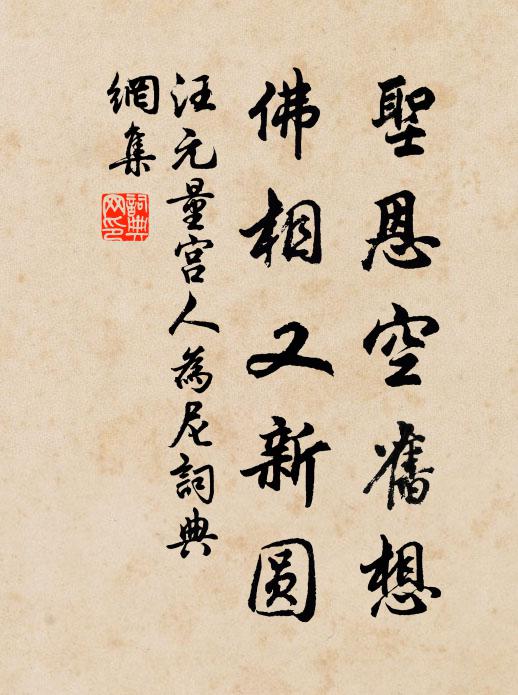 聖恩空舊想
佛相又新圆
汪元量宫人為尼詞典
網集
詞典
网印